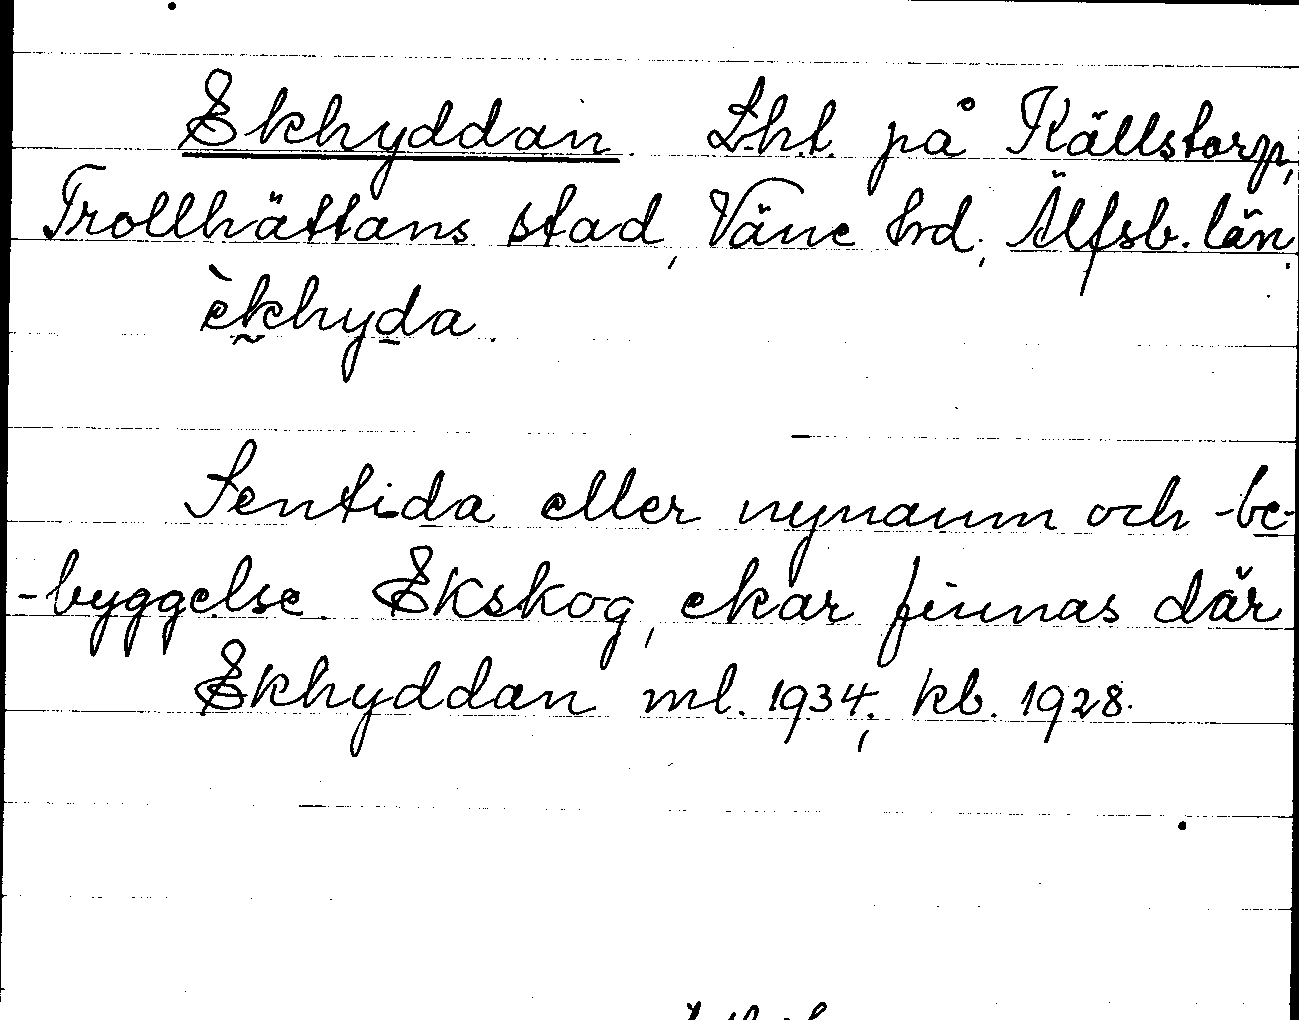 Ekhyddan. Lht. på Källstorp,
Trollhättans stad, Väne hrd, Älfsb. län.
èkhyda.
Sentida eller nynamn och -be-
-byggelse. Ekskog, ekar finnas där
Ekhyddan ml. 1934; kb. 1928.